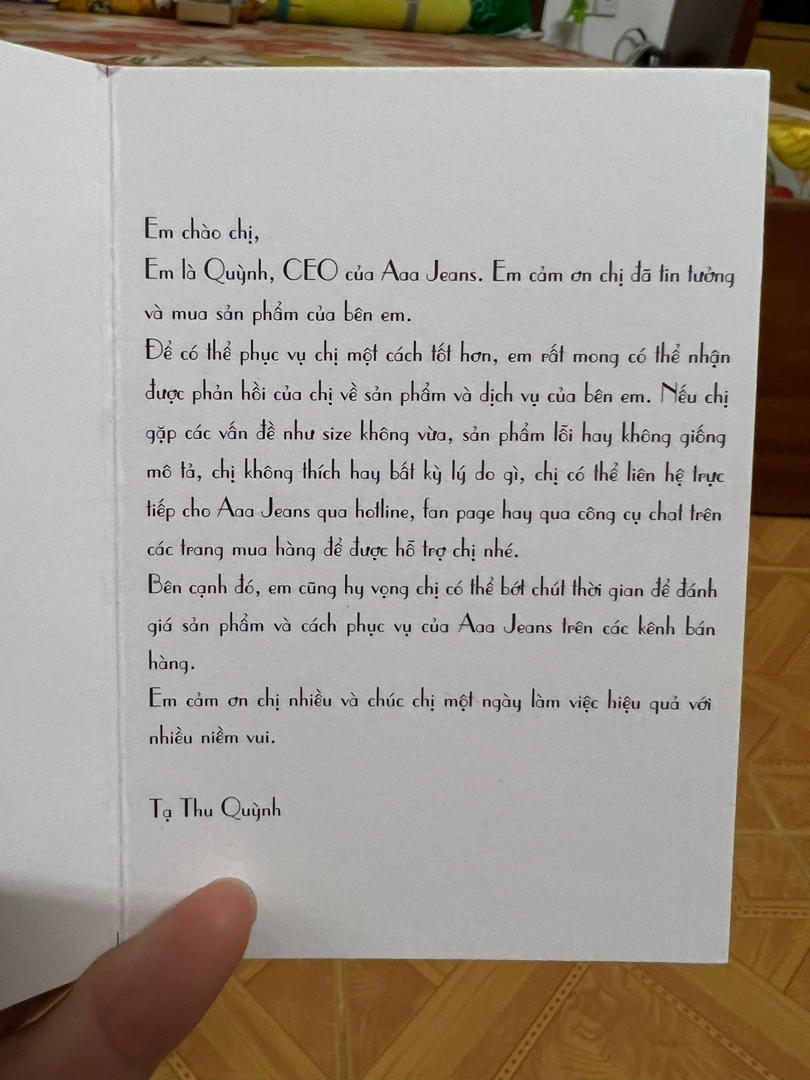 Em chào chị,
Em là Quỳnh, CEO của Aaa Jeans. Em cảm ơn chị đã tin tưởng
và mua sản phẩm của bên em.
Để có thể phục vụ chị một cách tốt hơn, em rất mong có thể nhận
được phản hồi của chị về sản phẩm và dịch vụ của bên em. Nếu chị
gặp các vấn đề như size không vừa, sản phẩm lỗi hay không giống
mô tả, chị không thích hay bất kỳ lý do gì, chị có thể liên hệ trực
tiếp cho Aaa Jeans qua hotline, fan page hay qua công cụ chat trên
các trang mua hàng để được hỗ trợ chị nhé.
Bên cạnh đó, em cũng hy vọng chị có thể bớt chút thời gian để đánh
giá sản phẩm và cách phục vụ của Aaa Jeans trên các kênh bán
hàng.
Em cảm ơn chị nhiều và chúc chị một ngày làm việc hiệu quả với
nhiều niềm vui.
Tạ Thu Quỳnh